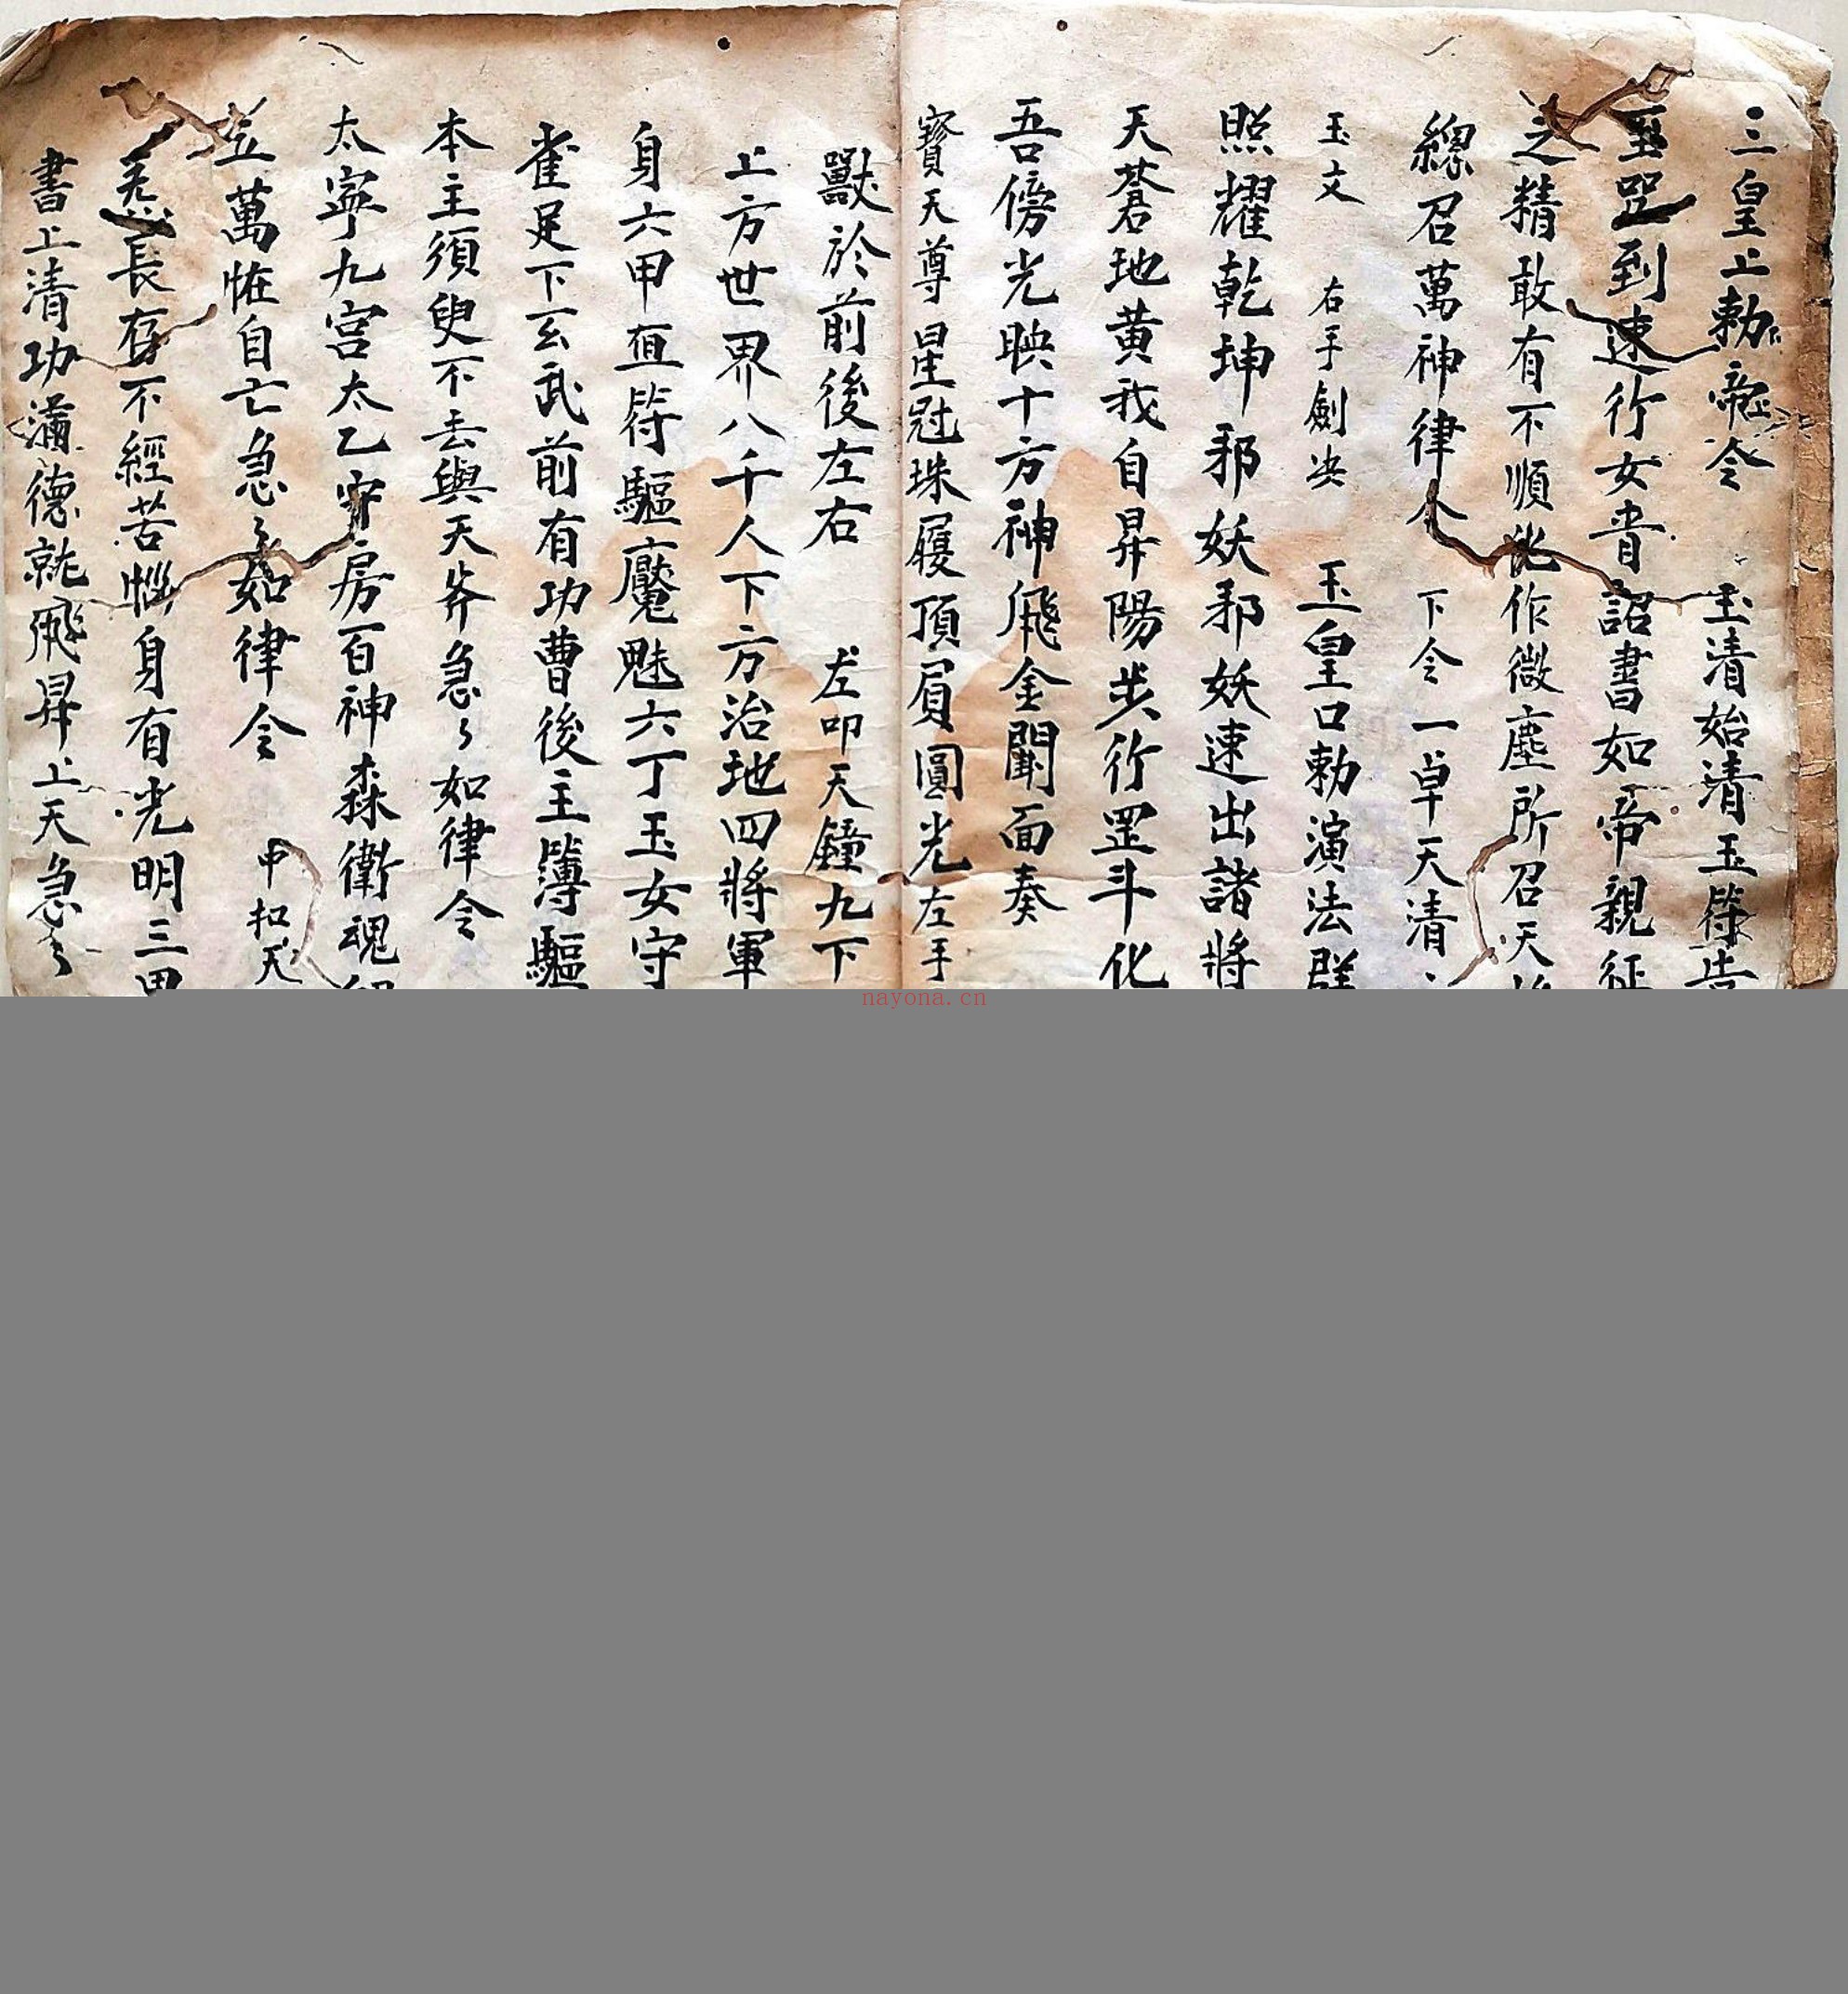 三皇上勅帝令 玉清始清玉符告
至咒到速行女青詔書如帝親征
之精敢有不順化作微塵所召天
緫召萬神律令 下令一卓天清
玉文 右手劍决 玉皇口勅演法群
照耀乾坤邪妖邪妖速出諸將
天蒼地黄我自昇陽步行罡斗化
吾傍光映十方神飛金闕面奏
寳天尊星冠珠履頂眉圓光左手
獸於前後左右 左叩天鐘九下
上方世界八千人下方治地四將軍
身六甲直符驅魘魅六丁玉女守
雀足下玄武前有功曹後主簿驅
本主須臾不去與天斧急〻如律令
太寧九宫太乙守房百神森衛魂
立萬恠自亡急〻如律令 中扣天
長存不經苦惱身有光明三界
書上清功滿德就飛昇上天急〻
nayona.cn